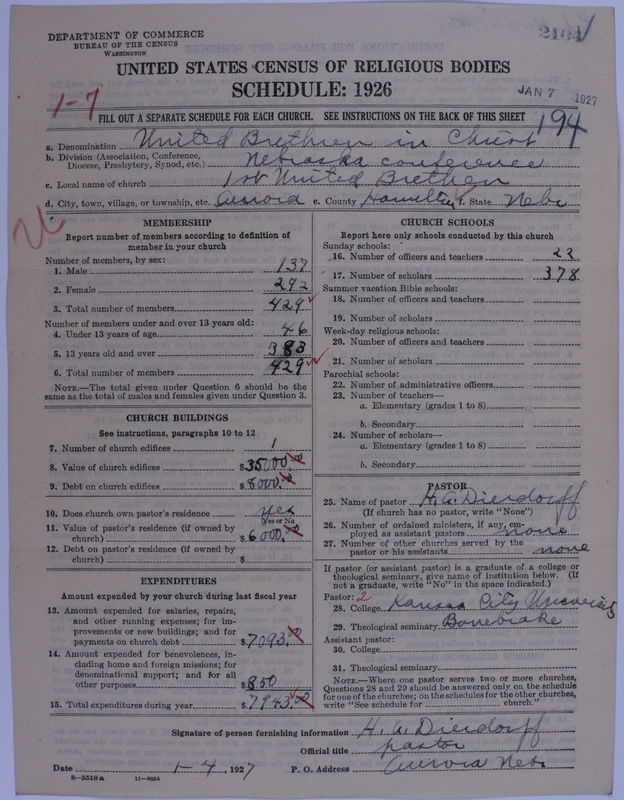 DEPARTMENT OF COMMERCE
BUREAU OF THE CENSUS
WASHINGTON
2101
UNITED STATES CENSUS OF RELIGIOUS BODIES
SCHEDULE: 1926
JAN 7 1927
1-7
FILL OUT A SEPARATE SCHEDULE FOR EACH CHURCH. SEE INSTRUCTIONS ON THE BACK OF THIS SHEET
194
a. Denomination United Brethren in Christ
b. Division (Association, Conference, Diocese, Presbytery, Synod, etc.) Nebraska conference
c. Local name of church 1st United Brethren
d. City, town, village, or township, etc. Aurora e. County Hamilton f. State Nebr
MEMBERSHIP
Report number of members according to definition of
member in your church
Number of members, by sex:
1. Male 137
2. Female 292
3. Total number of members 429
Number of members under and over 13 years old:
4. Under 13 years of age 46
5. 13 years old and over 383
6. Total number of members 429
NOTE.—The total given under Question 6 should be
same as the total of males and females given under Question 3.
CHURCH BUILDINGS
See instructions, paragraphs 10 to 12
7. Number of church edifices 1
8. Value of church edifices $35000.00
9. Debt on church edifices $8000.00
10. Does church own pastor's residence yes
Yes or No
11. Value of pastor's residence (if owned by
church) $6000.00
12. Debt on pastor's residence (if owned by
church) $
EXPENDITURES
Amount expended by your church during last fiscal year
13. Amount expended for salaries, repairs,
and other running expenses; for im-
provements or new buildings; and for
payments on church debt $7093.00
14. Amount expended for benevolences, in-
cluding home and foreign missions; for
denominational support; and for all
other purposes $850
15. Total expenditures during year $7943.00
CHURCH SCHOOLS
Report here only schools conducted by this church
Sunday schools:
16. Number of officers and teachers 23
17. Number of scholars 378
Summer vacation Bible schools:
18. Number of officers and teachers
19. Number of scholars
Week-day religious schools:
20. Number of officers and teachers
21. Number of scholars
Parochial schools:
22. Number of administrative officers
23. Number of teachers—
a. Elementary (grades 1 to 8)
b. Secondary
24. Number of scholars—
a. Elementary (grades 1 to 8)
b. Secondary
PASTOR
25. Name of pastor H. A. Dierdorff
(If church has no pastor, write "None")
26. Number of ordained ministers, if any, em-
ployed as assistant pastors none
27. Number of other churches served by the
pastor or his assistants none
If pastor (or assistant pastor) is a graduate of a college or
theological seminary, give name of institution below. (If
not a graduate, write "No" in the space indicated.)
Pastor: 2
28. College Kansas City University
29. Theological seminary Bonebrake
Assistant pastor:
30. College
31. Theological seminary
NOTE.—Where one pastor serves two or more churches,
Questions 28 and 29 should be answered only on the schedule
for one of the churches; on the schedules for the other churches,
write "See schedule for ______ church."
Signature of person furnishing information H. A. Dierdorff
Official title pastor
Date 1-4, 1927 P. O. Address Aurora Nebr
8—5518a 11—9264